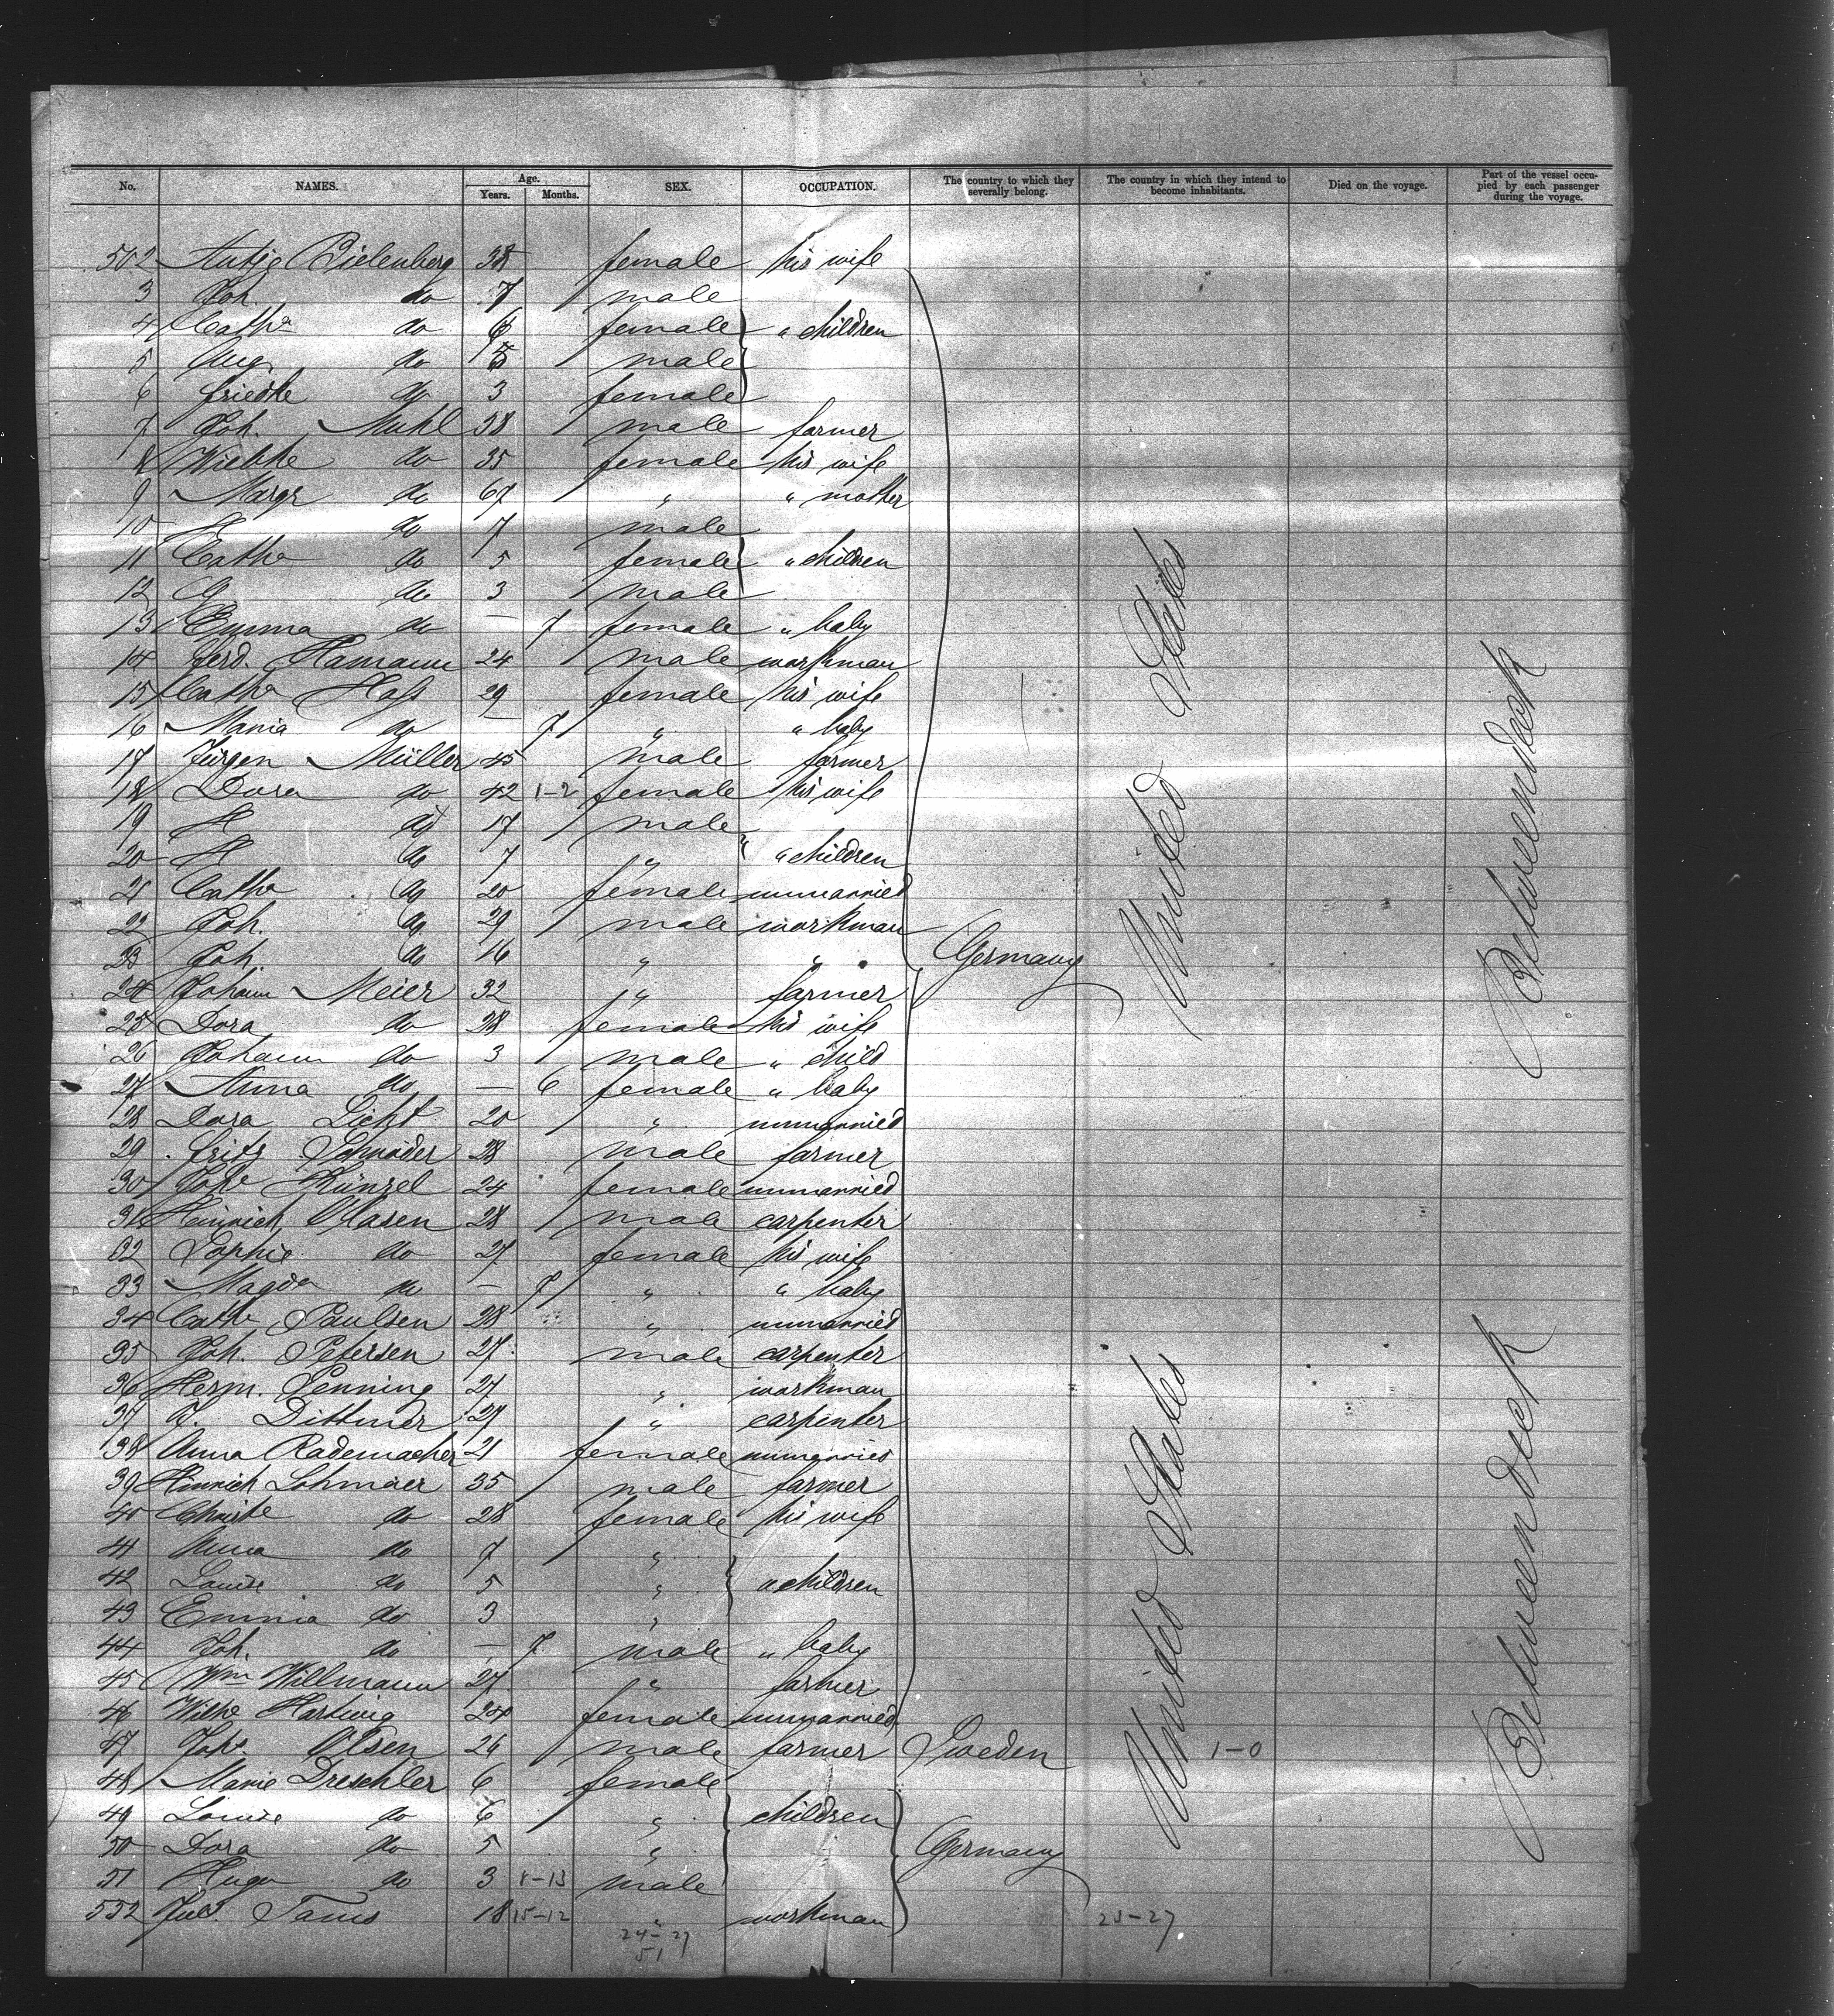 No. NAMES. Age. Years. Months. SEX. OCCUPATION. The country to which they severally belong. The country in which they intend to become inhabitants. Died on the voyage. Part of the vessel occupied by each passenger during the voyage.
502 Antje Bielenberg 38 female his wife
3 Joh. do 7 male
4 Catha do 6 female " children
5 Aug. do 5 male
6 Friedke do 3 female
7 Joh. Muhl 38 male farmer
8 Wiebke do 35 female his wife
9 Margr do 67 " " mother
10 H do 7 male
11 Catha do 5 female " children
12 do 3 male
13 Emma do — 7 female " baby
14 Ferd. Hamann 24 male workman
15 Catha Hass 29 female his wife
16 Maria do — 7 " " baby
17 Jürgen Müller 45 male farmer
18 Dora do 42 1-2 female his wife
19 H do 17 male
20 H do 7 " " children
21 Catha do 20 female unmarried
22 Joh. do 29 male workman
23 Joh. do 16 " " Germany United States Betweendeck
24 Johann Meier 32 " farmer
25 Dora do 28 female his wife
26 Johann do 3 male " child
27 Anna do — 6 female " baby
28 Dora Licht 20 " unmarried
29 Fritz Schröder 28 male farmer
30 Joha Künzel 24 female unmarried
31 Heinrich Clasen 28 male carpenter
32 Sophie do 27 female his wife
33 Magda do — 7 " " baby
34 Catha Paulsen 28 " unmarried
35 Joh. Petersen 27 male carpenter
36 Herm. Penning 27 " workman
37 Dittmer 27 " carpenter
38 Anna Rademacher 21 female unmarried
39 Hinrich Lohmaer 35 male farmer
40 Christe do 28 female his wife
41 Anna do 7 "
42 Louise do 5 " " children
43 Emma do 3 "
44 Joh. do — 7 male " baby
45 Wm Willmann 27 " farmer
46 Wilhe Hartwig 24 female unmarried
47 Johs Olsen 26 male farmer Sweden United States 1-0 Betweendeck
48 Marie Dreschler 6 female
49 Louise do 6 " children
50 Dora do 5 " Germany
51 Hugo do 3 8-13 male
552 Jul. Tams 18 15-12 " workman 25-27
24-27
51